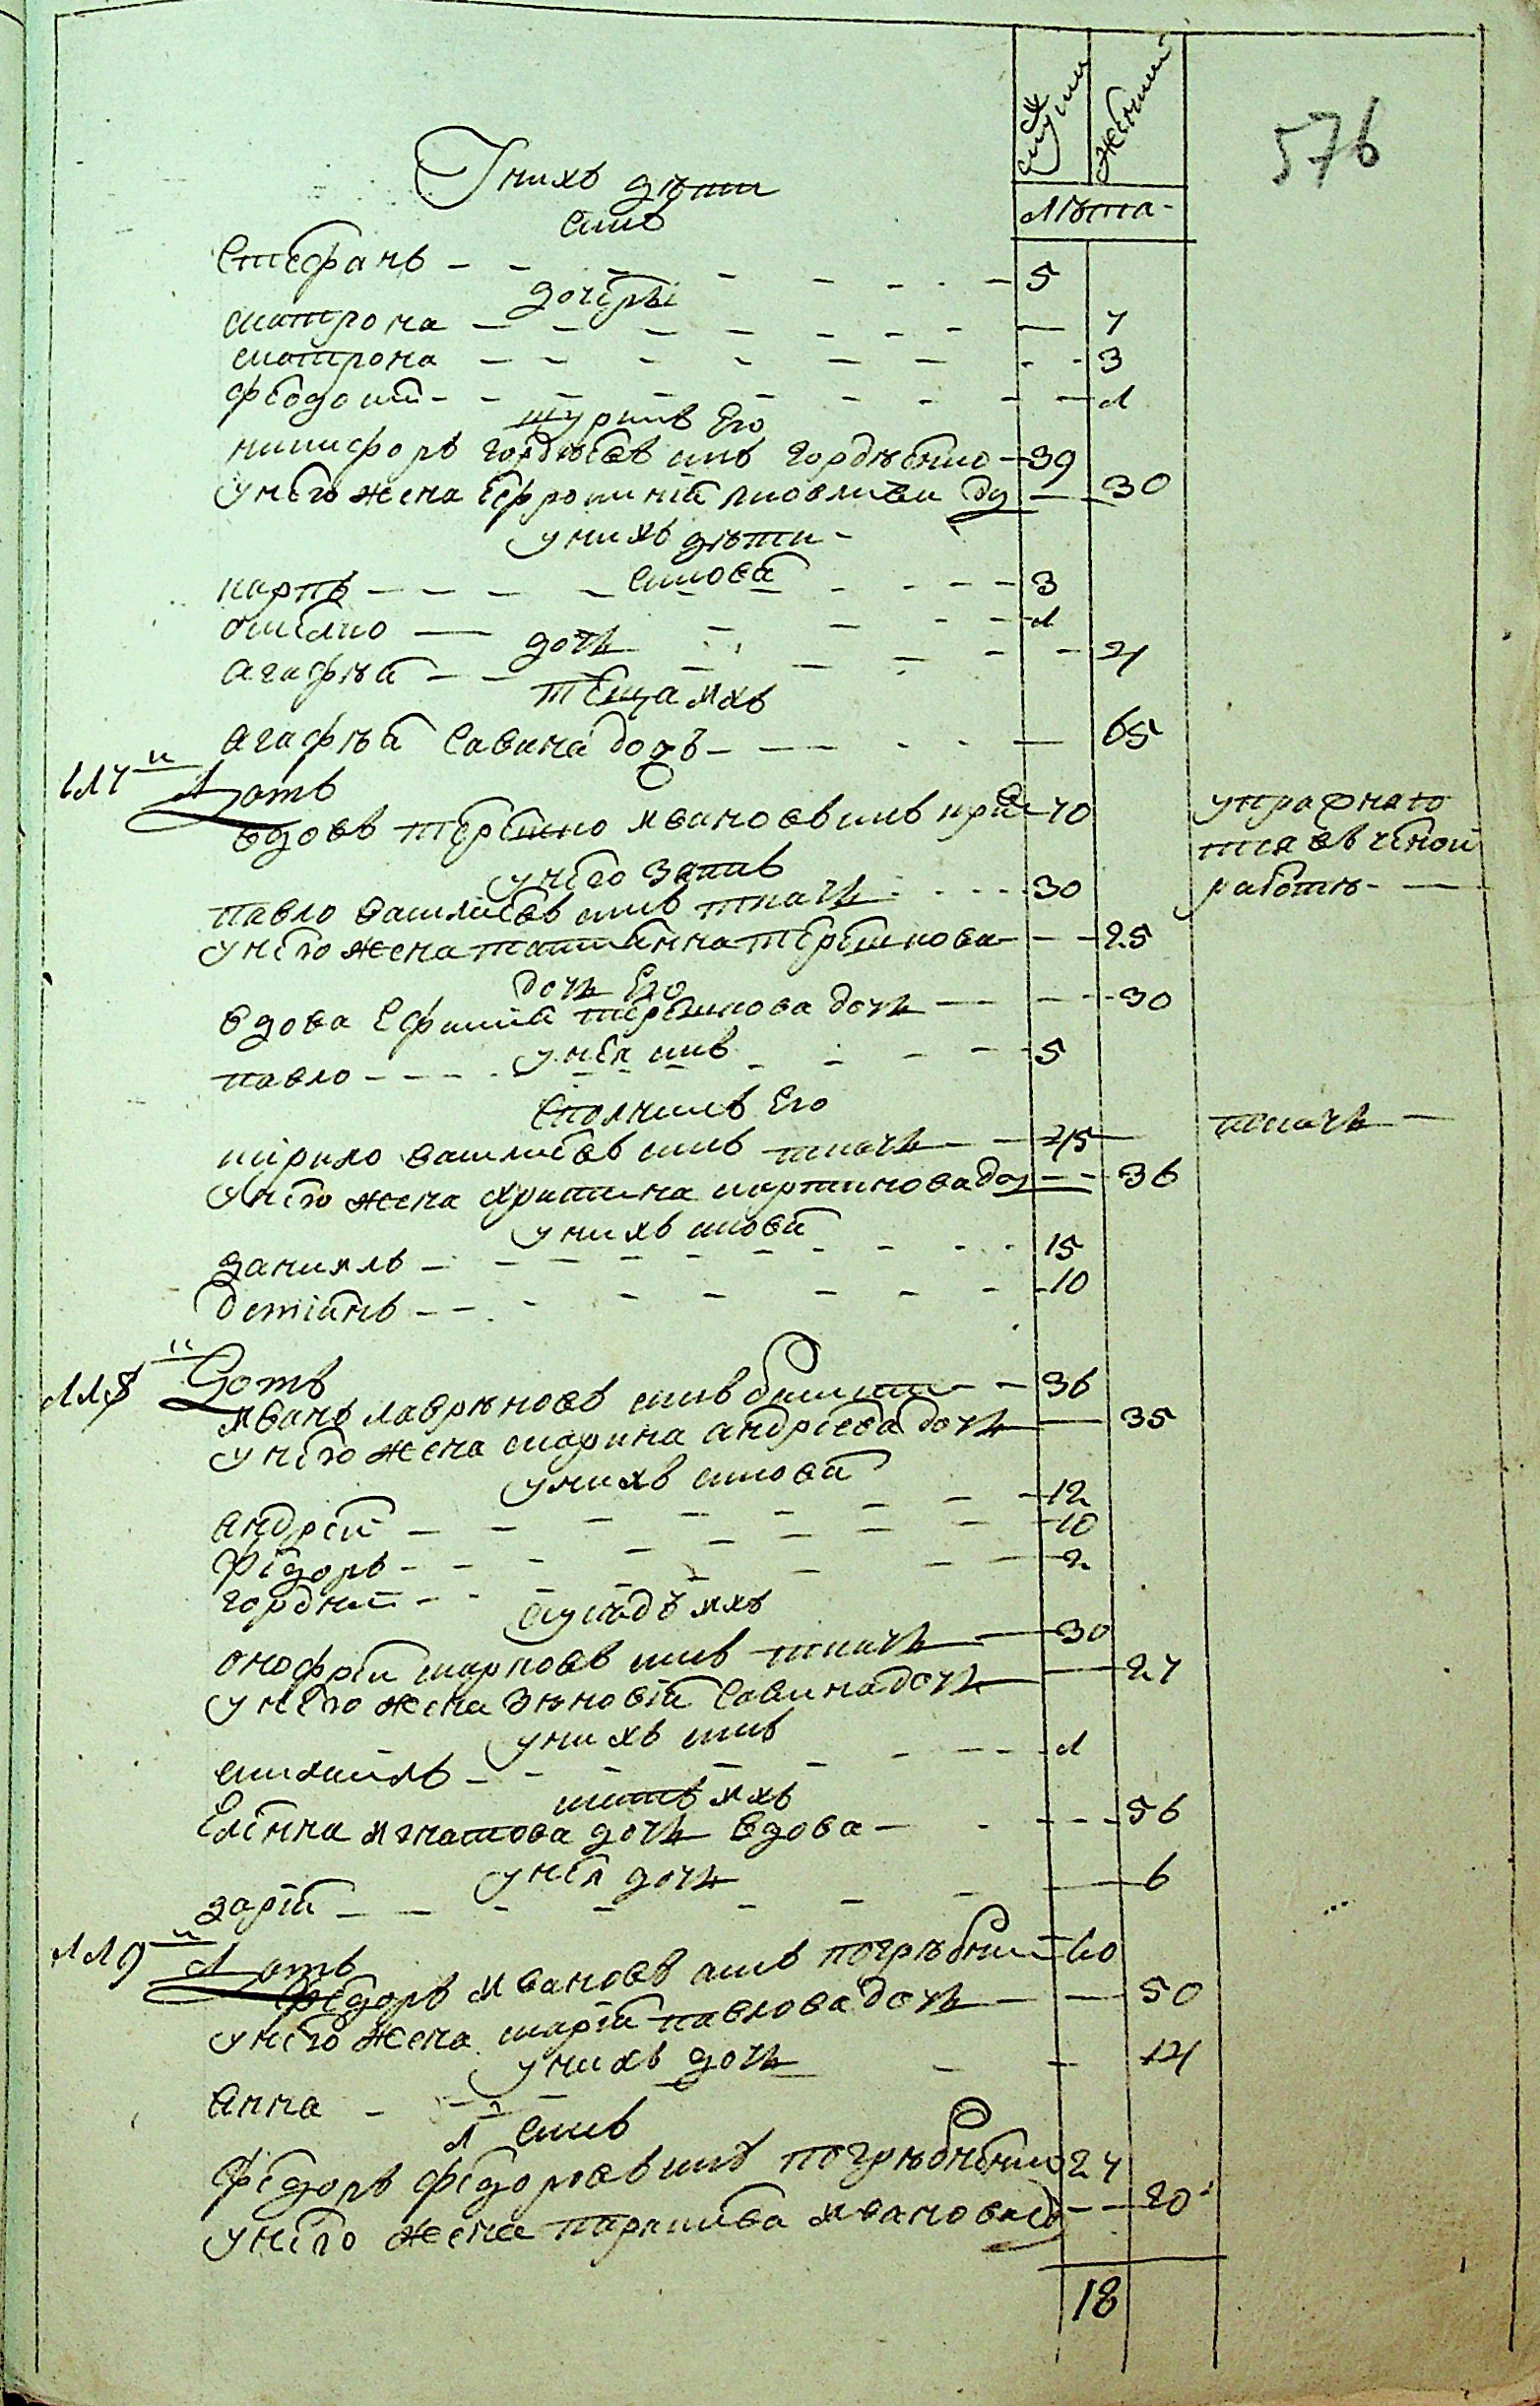 мужски женский
576
лѣта
У нихъ дѣти
синъ
Стефанъ 5
дочери
матрона 7
матрона 3
феодосия 1
шуринъ Его
никифоръ гордѣевъ синъ гордѣенко 39
у него жена Ефросиния яковлева до 30
у нихъ дѣти
синовя
карпъ 3
омелко 1
дочь
агафия 4
теща ихъ
агафия савина дочь 65
117 й дотъ
вдовъ терешко ивановъ синъ 70
упражняются въ
работѣ
у него зять
павло василиевъ синъ ткачъ 30
у него жена татиянна терешкова 25
дочь Его
вдова Ефимия терешкова дочь 30
у нея синъ
павло 5
Его
кирило василиевъ синъ ткачъ 45
ткачъ
у него жена христина мартинова до 36
у нихъ синовя
даниилъ 15
демянъ 10
118 й дотъ
иванъ лаврѣновъ синъ 36
у него жена марина андреева дочь 35
у нихъ синовя
андрей 12
федоръ 10
гордий 2
сусѣдъ ихъ
онофрей марковъ синъ ткачъ 30
у него жена зѣновия савина дочь 27
у нихъ синъ
михаилъ 1
мать ихъ
Еленна игнатова дочь вдова 56
у нея дочь
дария 6
119 й дотъ
федоръ ивановъ синъ погрѣбни 60
у него жена мария павлова дочь 50
у нихъ дочь
анна 14
1 синъ
федоръ федоровъ синъ погрѣбненко 27
у него жена параскева иванова до 20
18